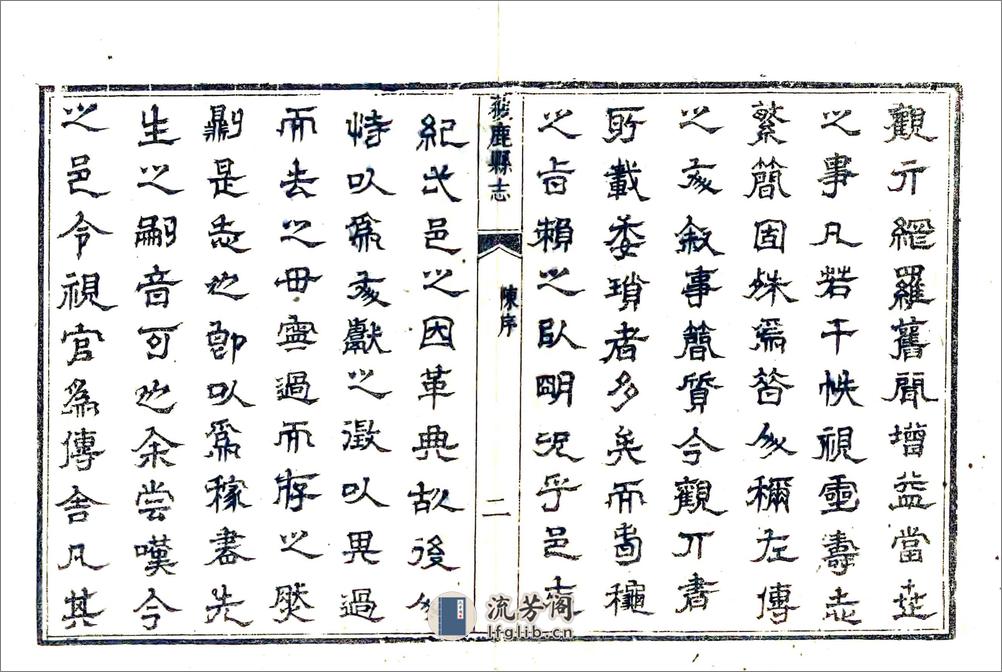 觀丌網羅舊聞增益當世
之事凡若干帙視靈壽志
繁簡固殊焉昔人稱左傳
之文敘事簡質今觀丌書
所載委瑣者多矣而旾穐
之旨賴之以朙况乎邑志
獲鹿縣志
陳序
二
紀此邑之因革典故後人
恃以爲文獻之徵以異過
而去之毋寧過而存之然
則是志也即以爲稼書先
生之嗣音可也余嘗嘆今
之邑令視官爲傳舍凡其
流芳阁
lfglib.cn